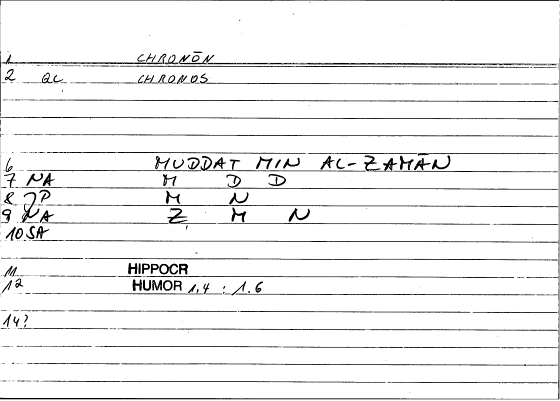 1 CHRONŌN
2 QC CHRONOS
6 MUDDAT MIN AL-ZAMĀN
7 NA M D D
8 JP M N
9 NA Z M N
10 SA
11 HIPPOCR
12 HUMOR 1,4 : 1.6
14?